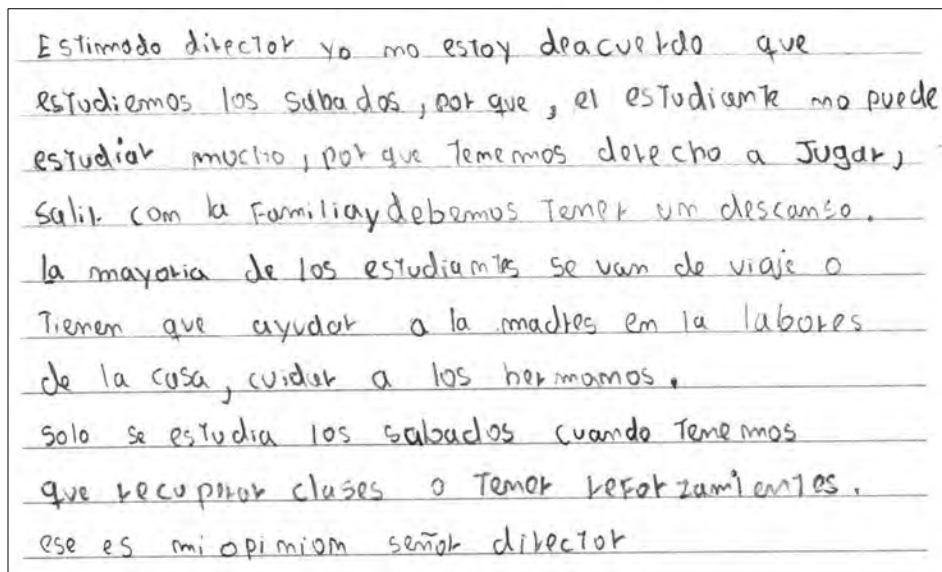 Estimado director yo no estoy deacuerdo que
estudiemos los sabados, por que, el estudiante no puede
estudiar mucho, por que tenemos derecho a Jugar,
Salir con la Familia y debemos Tener un descanso.
la mayoria de los estudiantes se van de viaje o
Tienen que ayudar a la madres en la labores
de la casa, cuidar a los hermanos.
solo se estudia los sabados cuando Tenemos
que recuperar clases o Tener reforzamientes.
ese es mi opinion señor director